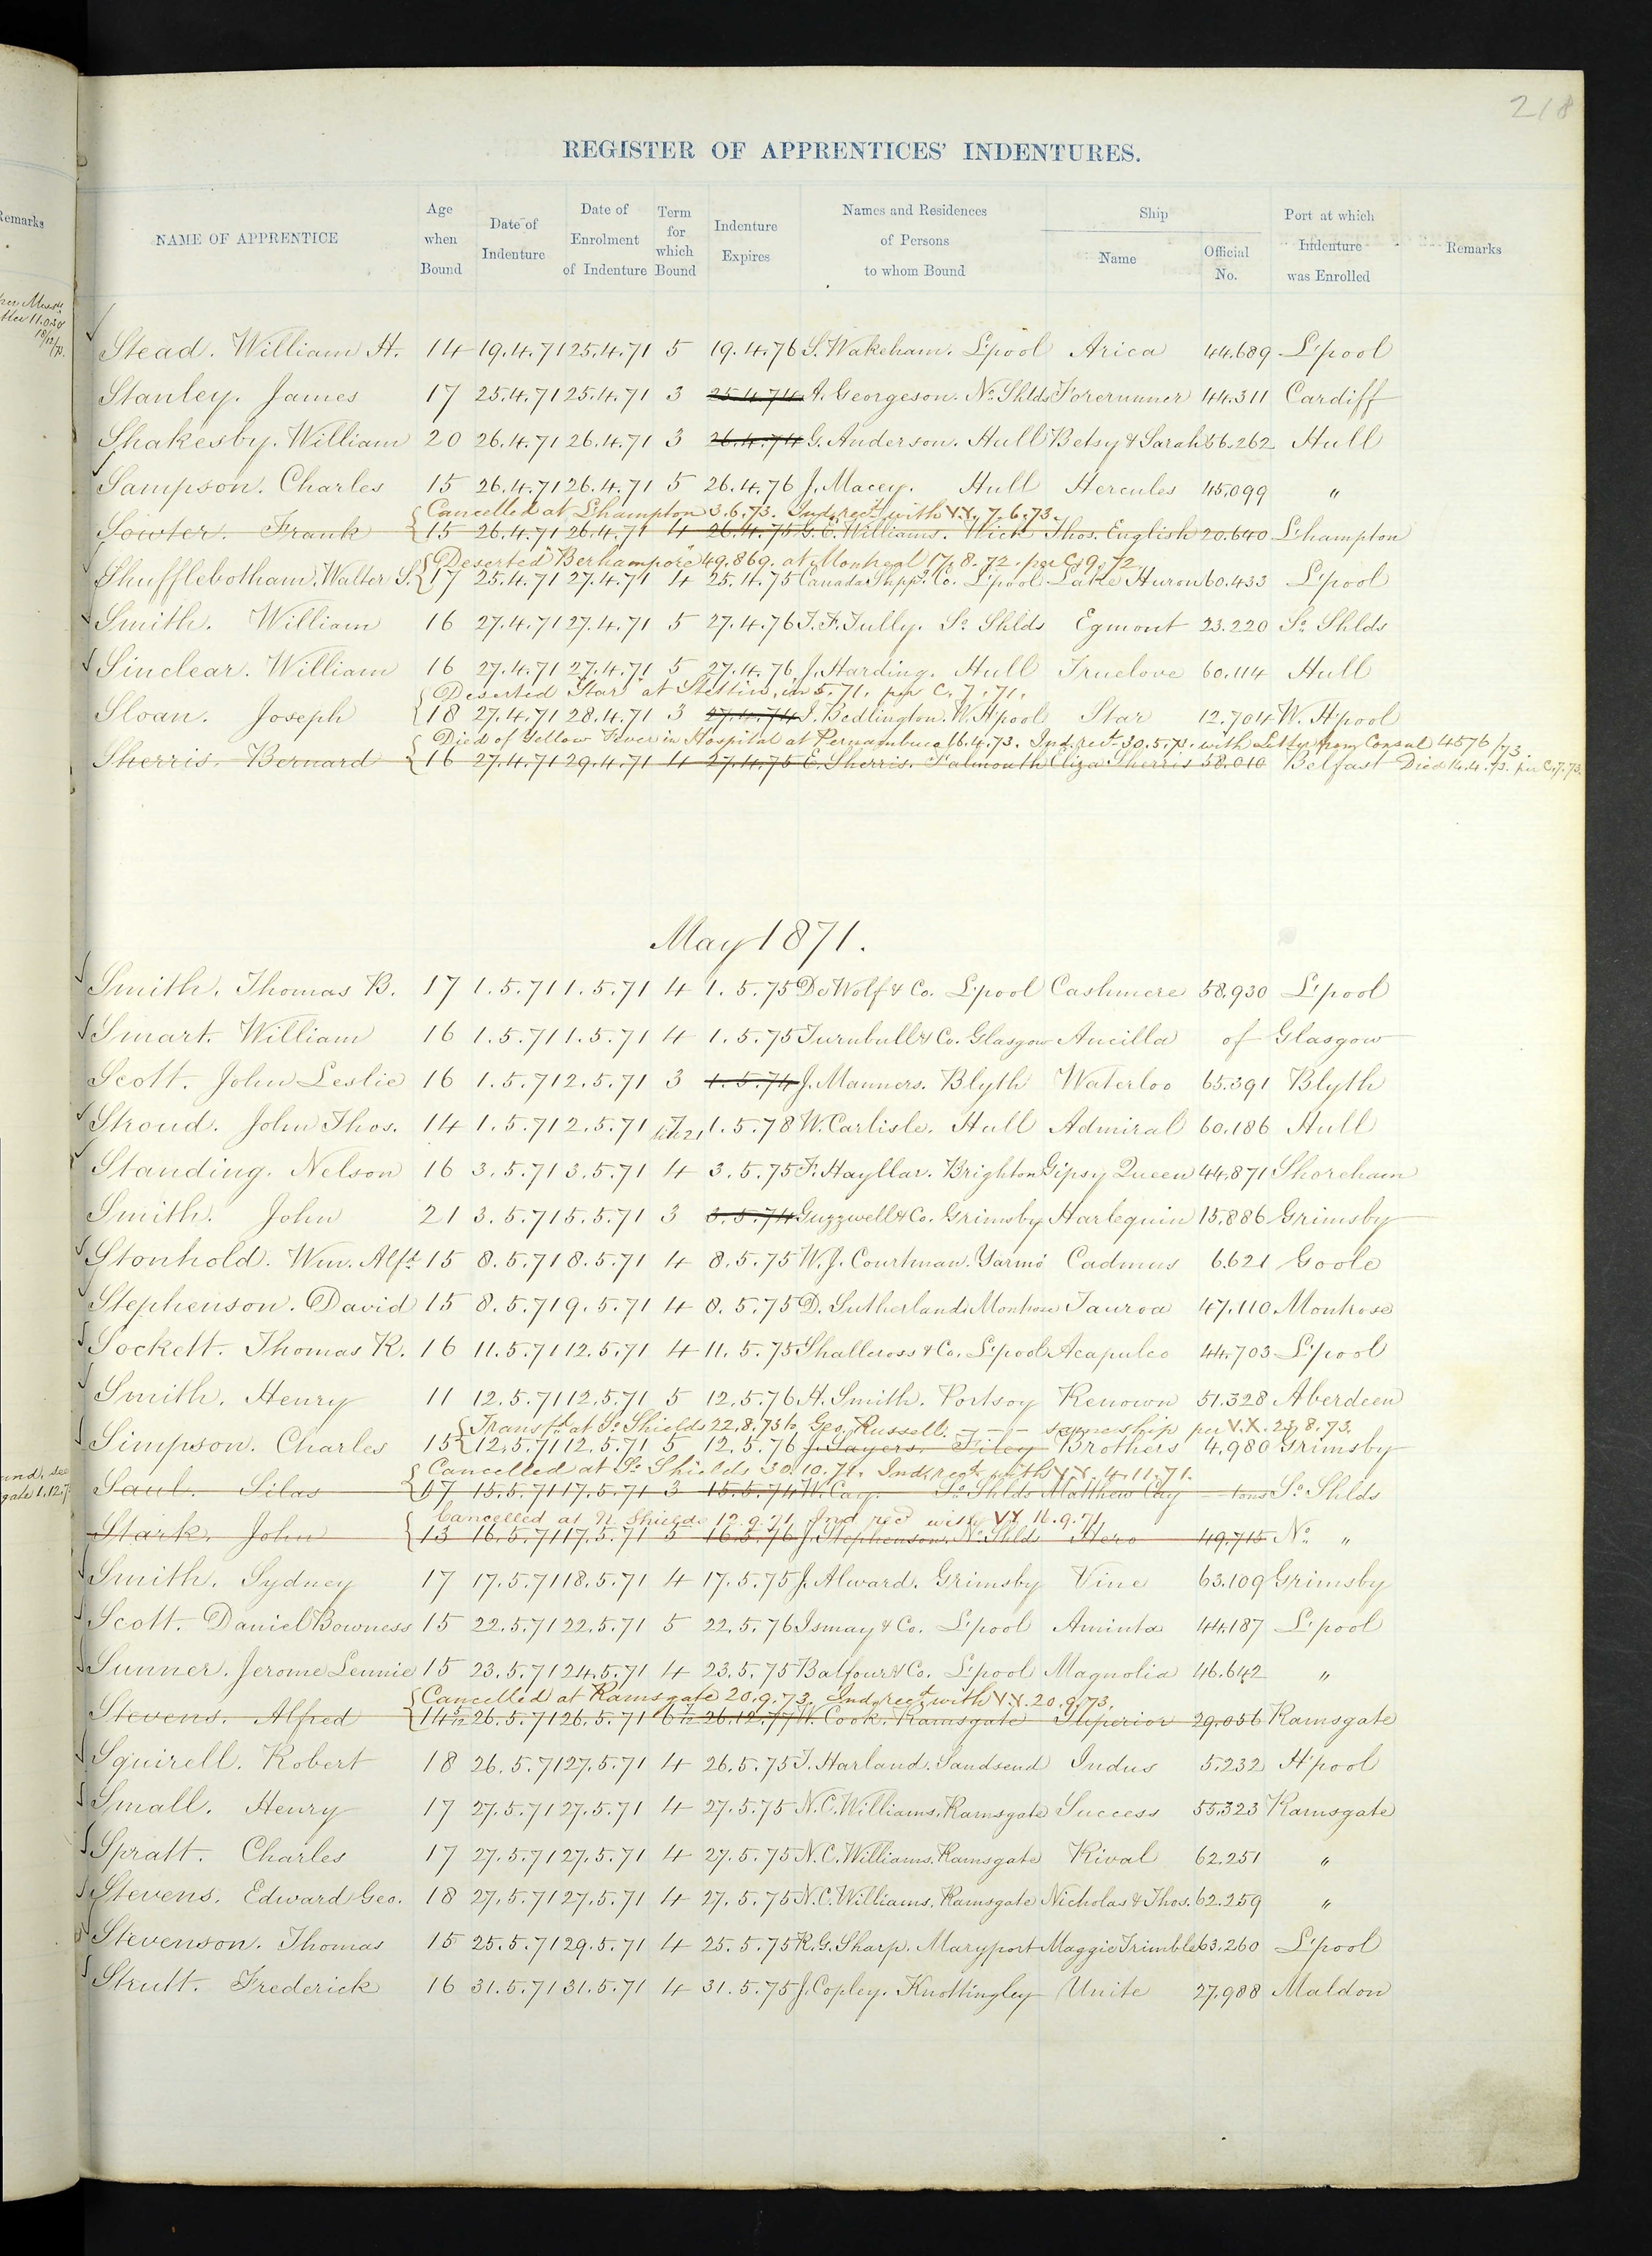 218
REGISTER OF APPRENTICES' INDENTURES.
NAME OF APPRENTICE | Age when Bound | Date of Indenture | Date of Enrolment of Indenture | Term for which Bound | Indenture Expires | Names and Residences of Persons to whom Bound | Ship Name | Official No. | Port at which Indenture was Enrolled | Remarks
Stead. William H. 14 19.4.71 25.4.71 5 19.4.76 S. Wakeham. L'pool Arica 44.689 L'pool
Stanley. James 17 25.4.71 25.4.71 3 25.4.74 A. Georgeson. No. Shlds Forerunner 44.311 Cardiff
Shakesby. William 20 26.4.71 26.4.71 3 26.4.74 G. Anderson. Hull Betsy & Sarah 56.262 Hull
Sampson. Charles 15 26.4.71 26.4.71 5 26.4.76 J. Macey. Hull Hercules 45.099 "
Cancelled at L'hampton 3.6.73. Ind. rec'd with VX. 7.6.73.
Sowter. Frank 15 26.4.71 26.4.71 4 26.4.75 G. E. Williams. Wick Thos. English 20.640 L'hampton
Deserted "Berhampore" 49.869. at Montreal 17.8.72. per C. 9.72
Shufflebotham. Walter S. 17 25.4.71 27.4.71 4 25.4.75 Canada Shippg. Co. L'pool Lake Huron 60.433 L'pool
Smith. William 16 27.4.71 27.4.71 5 27.4.76 T. F. Tully. So. Shlds Egmont 23.220 So. Shlds
Sinclear. William 16 27.4.71 27.4.71 5 27.4.76 J. Harding. Hull Truelove 60.114 Hull
Deserted "Star" at Stettin, in 5.71. per C. 7.71.
Sloan. Joseph 18 27.4.71 28.4.71 3 27.4.74 J. Bedlington. W. H'pool Star 12.704 W. H'pool
Died of Yellow Fever in Hospital at Pernambuco 16.4.73. Ind. rec't 30.5.73. with Letter from Consul 4576/73.
Sherris. Bernard 16 27.4.71 29.4.71 4 27.4.75 E. Sherris. Falmouth Eliza Sherris 58.010 Belfast Died 14.4.73. per C. 7.73.
May 1871.
Smith. Thomas B. 17 1.5.71 1.5.71 4 1.5.75 De Wolf & Co. L'pool Cashmere 58.930 L'pool
Smart. William 16 1.5.71 1.5.71 4 1.5.75 Turnbull & Co. Glasgow Ancilla of Glasgow
Scott. John Leslie 16 1.5.71 2.5.71 3 1.5.74 J. Manners. Blyth Waterloo 65.391 Blyth
Stroud. John Thos. 14 1.5.71 2.5.71 7 till 21 1.5.78 W. Carlisle. Hull Admiral 60.186 Hull
Standing. Nelson 16 3.5.71 3.5.71 4 3.5.75 F. Hayllar. Brighton Gipsy Queen 44.871 Shoreham
Smith. John 21 3.5.71 5.5.71 3 3.5.74 Guzzwell & Co. Grimsby Harlequin 15.886 Grimsby
Stonhold. Wm. Alfd. 15 8.5.71 8.5.71 4 8.5.75 W. J. Courtman. Yarmo Cadmus 6.621 Goole
Stephenson. David 15 8.5.71 9.5.71 4 8.5.75 D. Sutherland. Montrose Tauroa 47.110 Montrose
Sockett. Thomas R. 16 11.5.71 12.5.71 4 11.5.75 Shallcross & Co. L'pool Acapulco 44.703 L'pool
Smith. Henry 11 12.5.71 12.5.71 5 12.5.76 H. Smith. Portsoy Renown 51.328 Aberdeen
Transfd. at So. Shields 22.8.73 to Geo. Russell. — same ship per V.X. 23.8.73.
Simpson. Charles 15 12.5.71 12.5.71 5 12.5.76 J. Sayers. Filey Brothers 4.980 Grimsby
Cancelled at So. Shields 30.10.71. Ind. rec't with VX. 4.11.71.
Saul. Silas 17 15.5.71 17.5.71 3 15.5.74 W. Cay. So. Shlds Matthew Cay tons So. Shlds
Cancelled at N. Shields 12.9.71. Ind rec'd with VX 16.9.71
Stark. John 13 16.5.71 17.5.71 5 16.5.76 J. Stephenson. No. Shlds Hero 49.715 No. "
Smith. Sydney 17 17.5.71 18.5.71 4 17.5.75 J. Alward. Grimsby Vine 63.109 Grimsby
Scott. Daniel Bowness 15 22.5.71 22.5.71 5 22.5.76 Ismay & Co. L'pool Aminta 44.187 L'pool
Sunner. Jerome Lennie 15 23.5.71 24.5.71 4 23.5.75 Balfour & Co. L'pool Magnolia 46.642 "
Cancelled at Ramsgate 20.9.73. Ind. rec't with VX. 20.9.73.
Stevens. Alfred 14 5/12 26.5.71 26.5.71 6 7/12 26.12.77 W. Cook. Ramsgate Superior 29.056 Ramsgate
Squirell. Robert 18 26.5.71 27.5.71 4 26.5.75 T. Harland. Sandsend Indus 5.232 H'pool
Small. Henry 17 27.5.71 27.5.71 4 27.5.75 N. C. Williams. Ramsgate Success 55.323 Ramsgate
Spratt. Charles 17 27.5.71 27.5.71 4 27.5.75 N. C. Williams. Ramsgate Rival 62.251 "
Stevens. Edward Geo. 18 27.5.71 27.5.71 4 27.5.75 N. C. Williams. Ramsgate Nicholas & Thos. 62.259 "
Stevenson. Thomas 15 25.5.71 29.5.71 4 25.5.75 R. G. Sharp. Maryport Maggie Trimble 63.260 L'pool
Strutt. Frederick 16 31.5.71 31.5.71 4 31.5.75 J. Copley. Knottingley Unite 27.988 Maldon